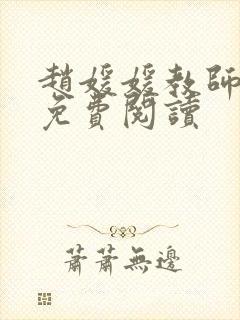 趙媛媛教師
免費閱讀
蕭蕭無邊